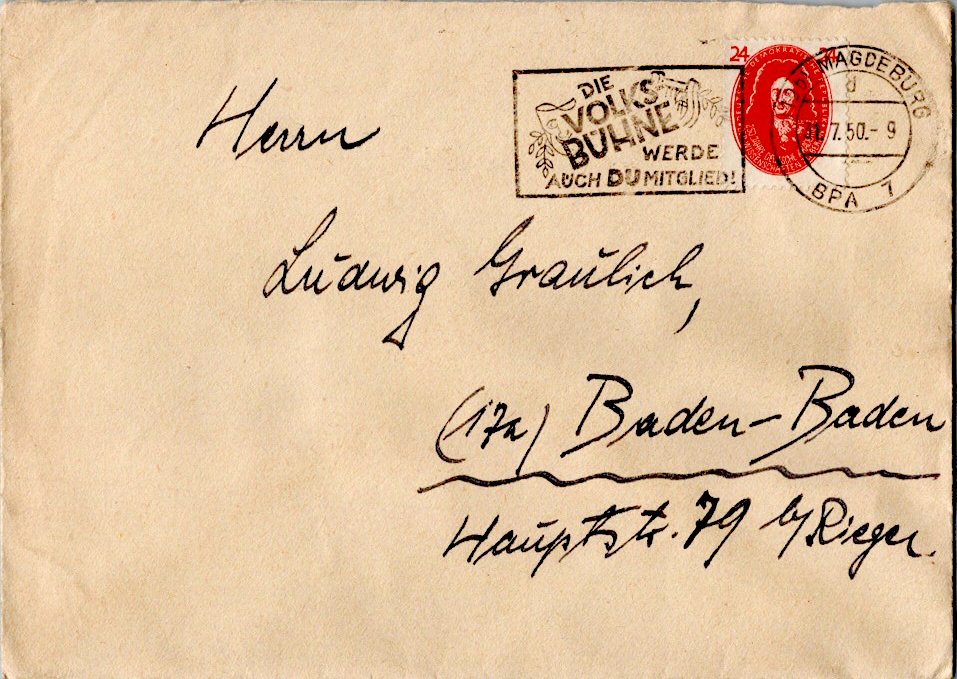 24 24
DEMOKRATISCHE
MAGDEBURG
d
7.50.-9
BPA 7
DIE
VOLKS
BÜHNE
WERDE
AUCH DU MITGLIED!
Herrn
Ludwig Graulich,
(17a) Baden-Baden
Hauptstr. 79 b/Rieger.